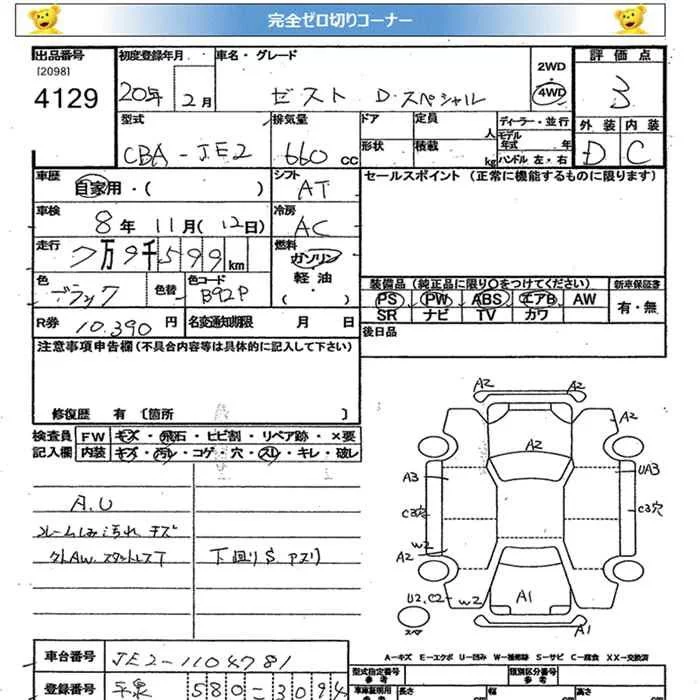 完全ゼロ切りコーナー
出品番号 初度登録年月 車名・グレード 2WD・4WD 評価点
[2098]
4129 20年 2月 ゼスト D.スペシャル 3
型式 排気量 ドア 定員 人 ディーラー・並行 外装 内装
CBA-JE2 660cc 形状 積載 kg モデル年式 年 ハンドル 左・右 D C
車歴 自家用・( ) シフト AT セールスポイント(正常に機能するものに限ります)
車検 8年11月(12日) 冷房 AC
走行 7万9千599km 燃料 ガソリン
軽油
・( )
色 ブラック 色替 色コード B92P 装備品(純正品に限り○をつけてください) 新車保証書
PS PW ABS エアB AW 有・無
SR ナビ TV カワ
R券 10,390円 名変通知期限 月 日 後日品
注意事項申告欄(不具合内容等は具体的に記入して下さい)
修復歴 有〔箇所 〕
検査員 FW キズ・飛石・ヒビ割・リペア跡・×要
記入欄 内装 キズ・汚レ・コゲ・穴・スレ・キレ・破レ
A.U
クトAW.スタットレスT 下回りS
A2 A2
A2
A2
A3 UA3
C3穴 C3穴
W2
A2
U2.C2 W2 A1
スペア A1
A-キズ E-エクボ U-凹み W-補修跡 S-サビ C-腐食 XX-交換済
車台番号 JE2-1104781 型式指定番号 類別区分番号
参考 参考
登録番号 580-3094 車庫証明用 長さ 幅 高さ